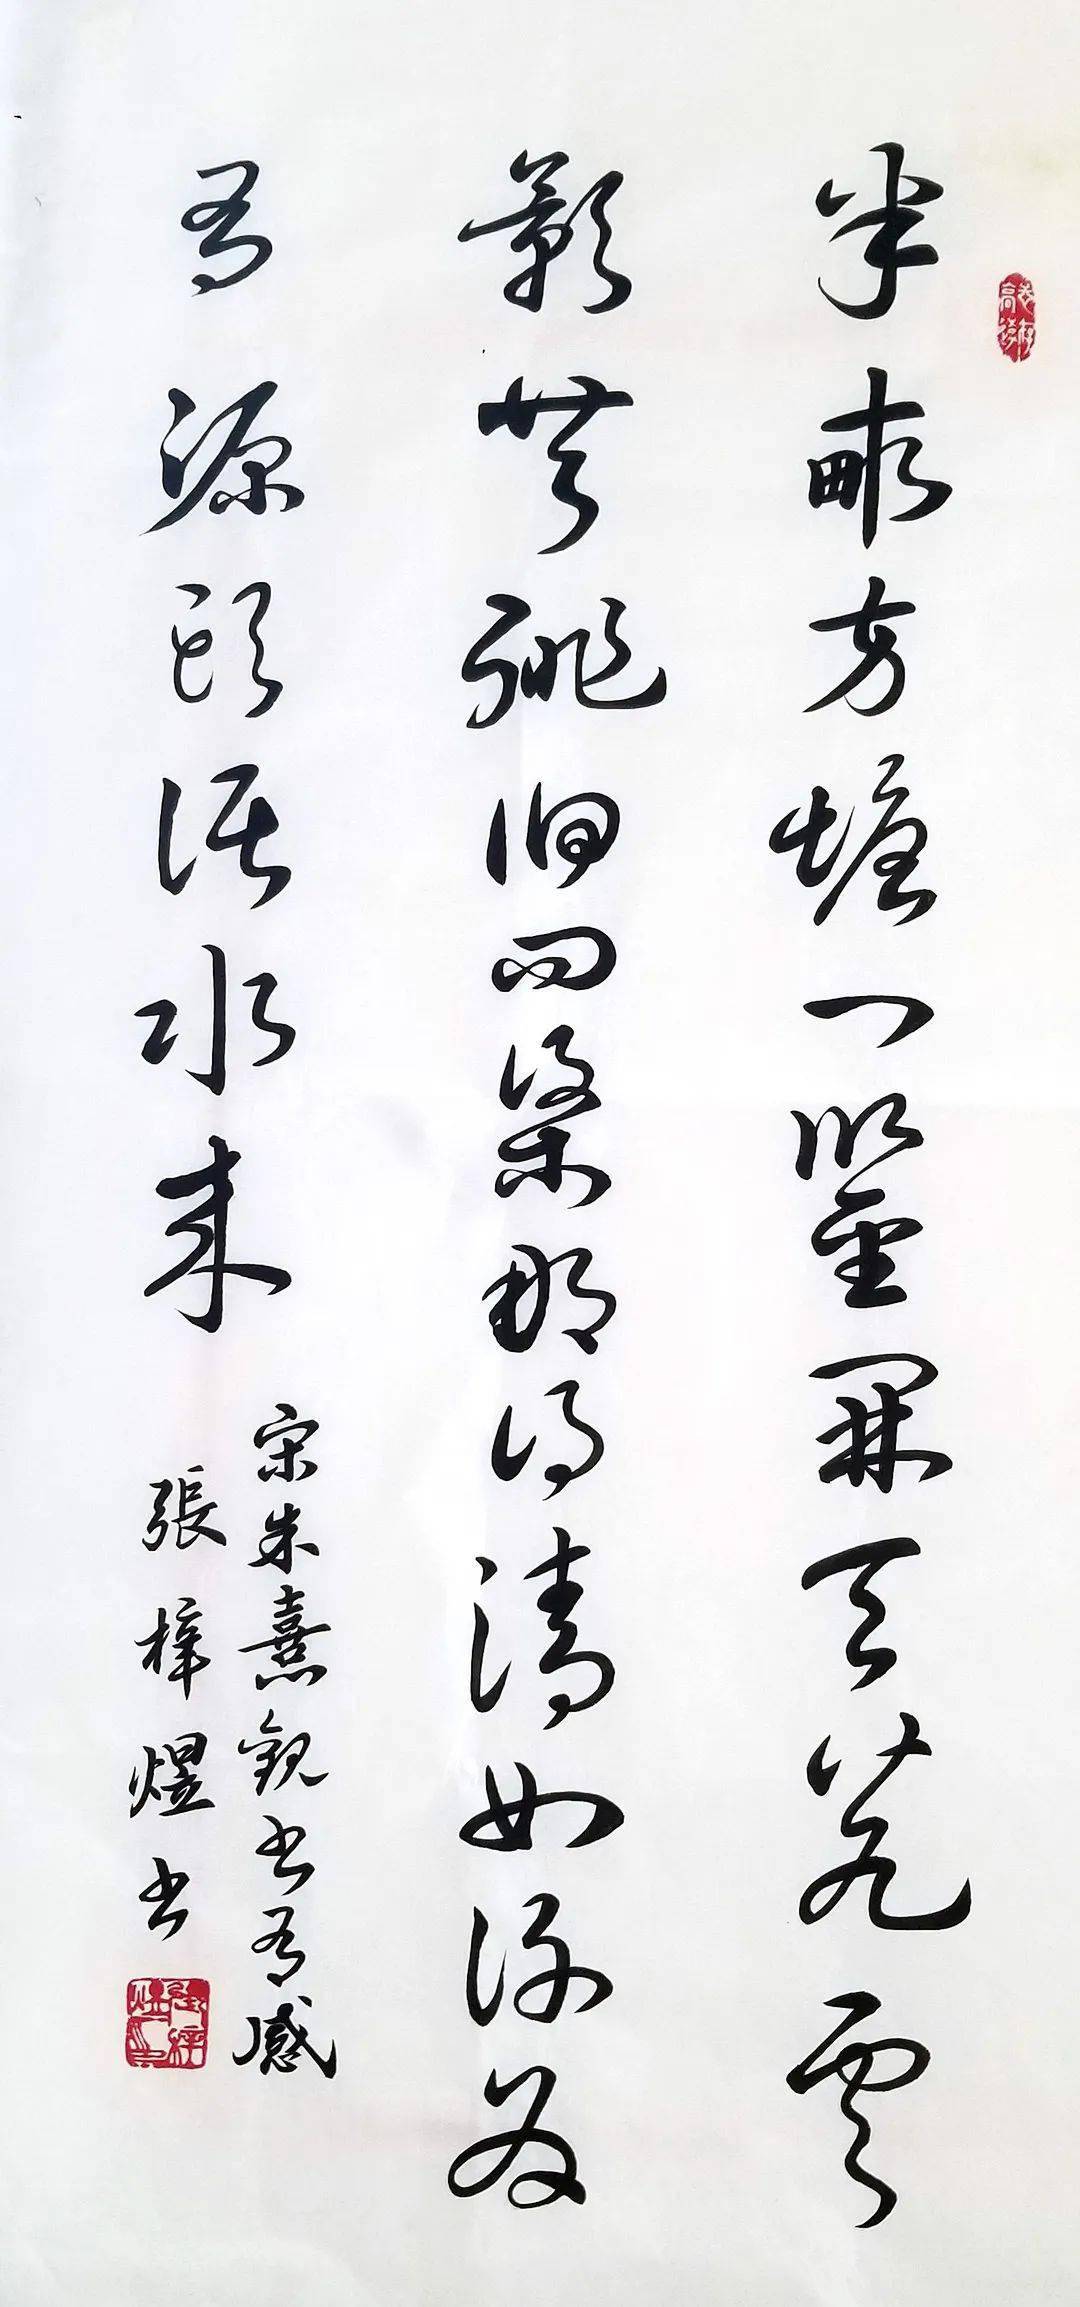 志存高遠
半畝方塘一鑒開天光雲
影共徘徊問渠那得清如許為
有源頭活水來
宋朱熹觀書有感
張梓煜書
張梓煜印